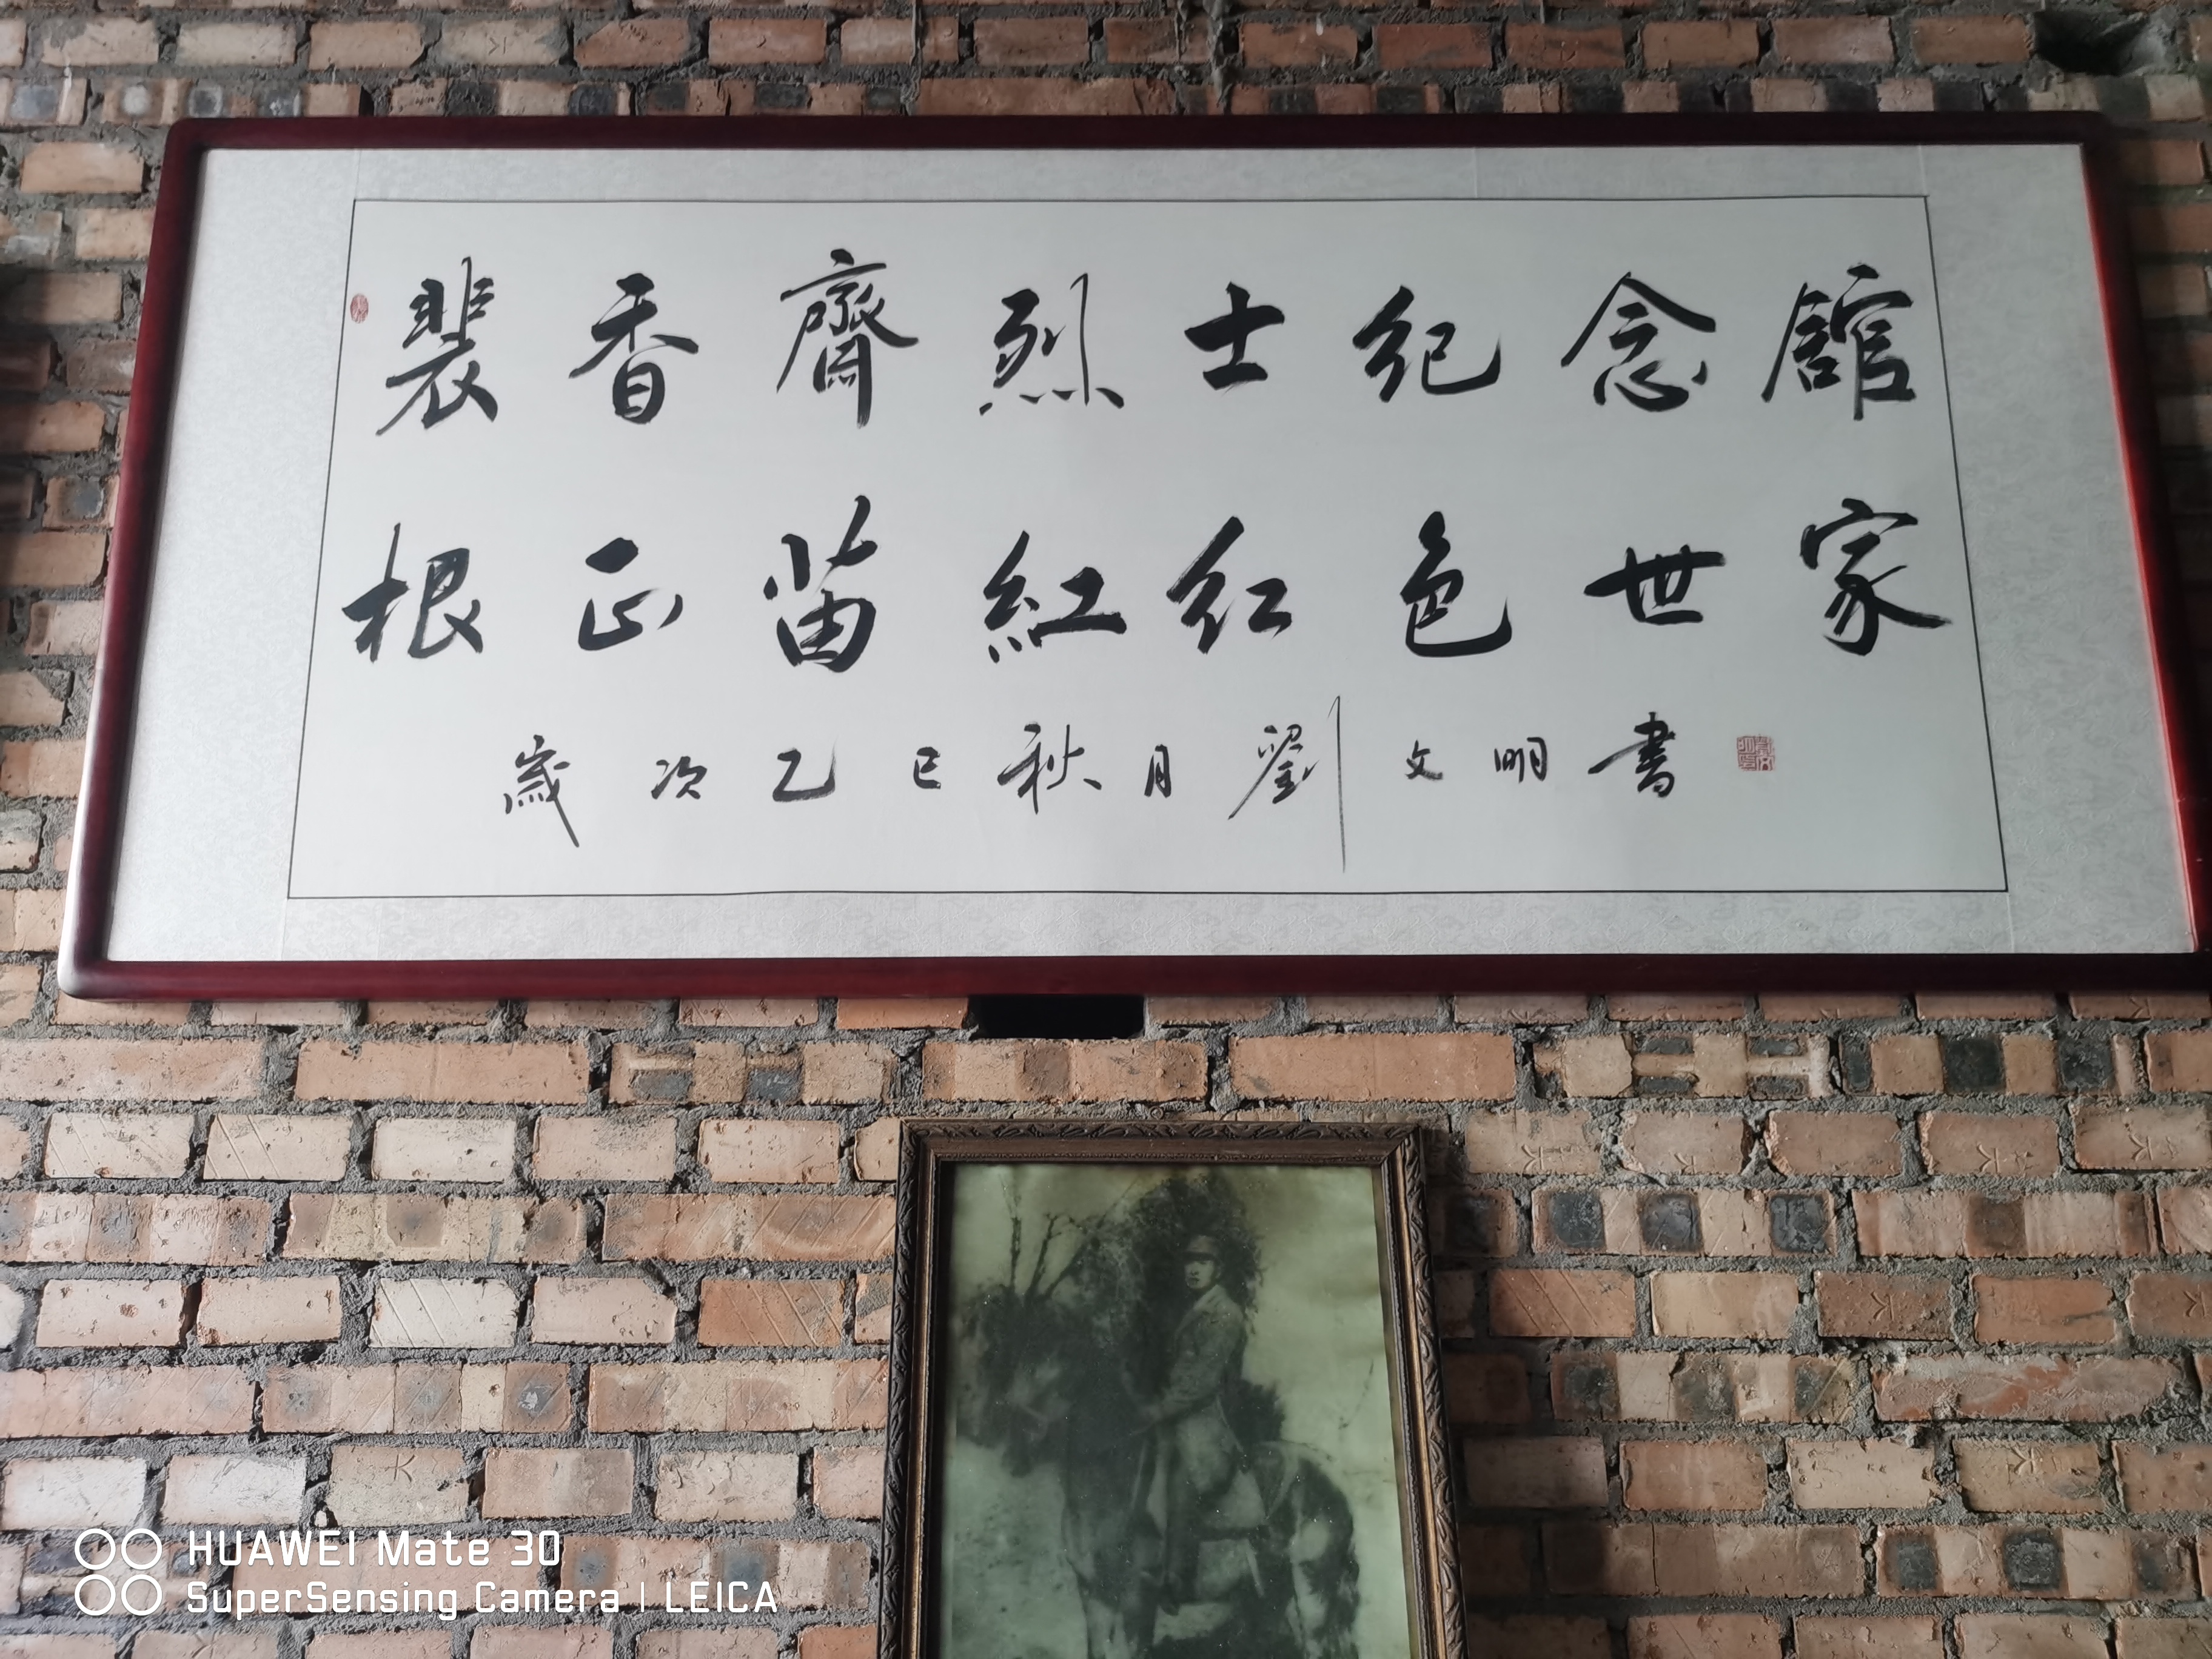 裴香齋烈士紀念館
根正苗紅红色世家
歲次乙巳秋月劉文明書
HUAWEI Mate 30
SuperSensing Camera | LEICA